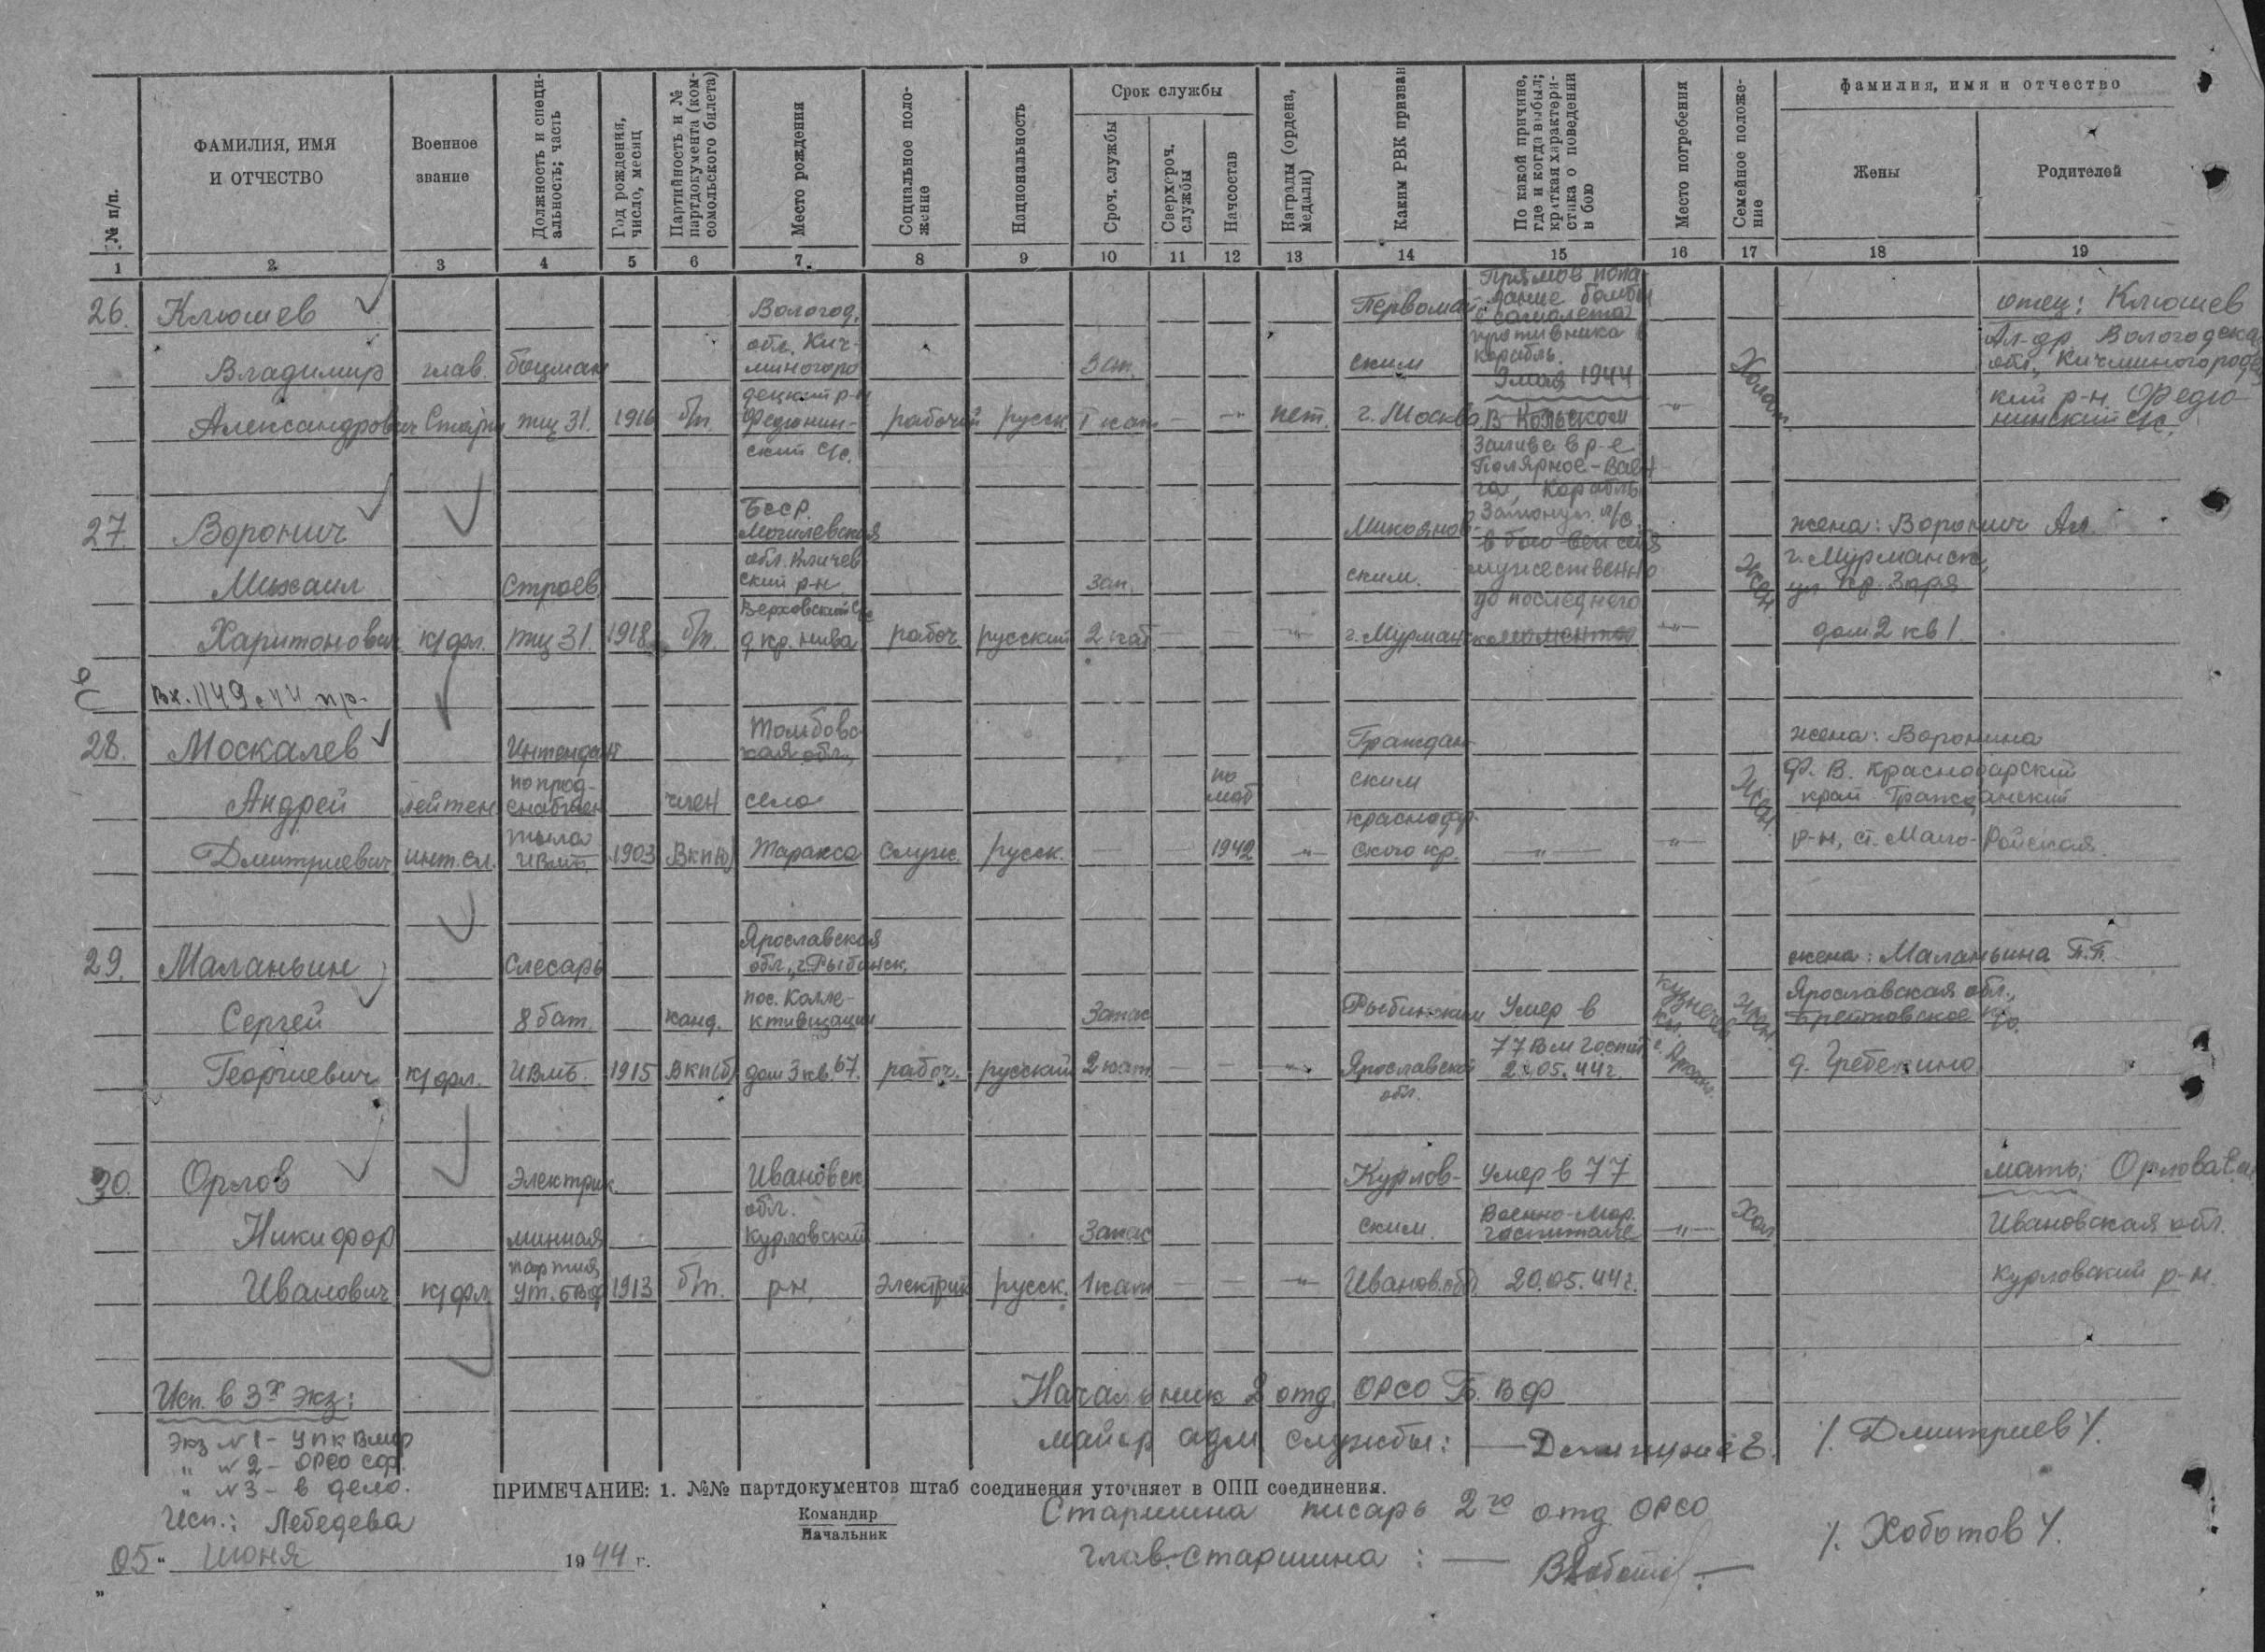 № п/п.
ФАМИЛИЯ, ИМЯ
И ОТЧЕСТВО
Военное
звание
Должность и специ-
альность; часть
Год рождения,
число, месяц
Партийность и №
партдокумента (ком-
сомольского билета)
Место рождения
Социальное поло-
жение
Национальность
Срок службы
Сроч. службы
Сверхсроч.
службы
Начсостав
Награды (ордена,
медали)
Каким РВК призван
По какой причине,
где и когда выбыл;
краткая характери-
стика о поведении
в бою
Место погребения
Семейное положе-
ние
Фамилия, имя и отчество
Жены
Родителей
1 2 3 4 5 6 7 8 9 10 11 12 13 14 15 16 17 18 19
26. Клюшев
Владимир
Александрович
глав.
Старш
боцман
тщ 31.
1916
б/п.
Вологод.
обл. Кич-
миногоро
децкий р-н
Федюнин-
ский с/с.
рабочий
русск.
Зап.
1 кат
— -"-
нет.
Первомай-
ским
г. Москва
Прямое попа-
дание бомбы
с самолета
противника в
корабль.
9 мая 1944
В Кольском
Заливе в р-е
Полярное-Ваен
га, Корабль
Затонул. л/с.
в бою вел себя
мужественно
до последнего
момента
-"-
Холост.
отец: Клюшев
Ал-др Вологодская
обл., Кичминогородец
кий р-н Федю-
нинский с/с.
27. Воронич
Михаил
Харитонович
к/фл.
Строев.
тщ 31.
1918
б/п.
БССР.
Могилевская
обл. Кличев
ский р-н
Верховский с/с
д кр. нива
рабоч.
русский
Зап.
2 кат
— — -"-
Микоянов-
ским.
г. Мурманск
-"-
Жен.
жена: Воронич Ал.
г. Мурманск,
ул Кр. Заря
дом 2 кв 1.
Вх. 1149с 44 пр-
28. Москалев
Андрей
Дмитриевич
лейтен.
инт. сл.
Интендант
по прод-
снабжен
тыла
ИВМБ.
1903
член
ВКП(б)
Томбовс
кая обл.,
село
Таракса
Служ.
русск.
— —
по
моб
1942
-"-
Граждан-
ским
Краснодар-
ского кр.
-"-
-"-
Жен.
жена: Воронина
Ф. В. Краснодарский
край Гражданский
р-н, ст. Мало-Ройская.
29. Маланьин
Сергей
Георгиевич
к/фл.
Слесарь
8 бат.
ИВМБ.
1915
канд.
ВКП(б)
Ярославская
обл., г. Рыбинск,
пос. Колле-
ктивизации
дом 3 кв. 67.
рабоч.
русский
Запас
2 кат
— — -"-
Рыбинским
Ярославской
обл.
Умер в
77 ВМ Госпит
05.44г.
Жен.
жена: Маланьина П.П.
Ярославская обл.,
Брейтовское
д. Гребенино
30. Орлов
Никифор
Иванович
к/фл.
Электрик.
минная
партия
1913
б/п.
Ивановск
обл.
Курловский
р-н.
Электрик
русск.
Запас
1 кат
— — -"-
Курлов-
ским.
Иванов. обл.
Умер в 77
Военно-Мор.
госпитале
20.05.44г.
-"-
Хол.
мать: Орлова
Ивановская обл.
Курловский р-н.
Исп. в 3х экз:
Экз № 1 - УПК ВМФ
" № 2 - ОРСО СФ.
" № 3 - в дело.
Исп.: Лебедева
„05“ Июня 1944 г.
Начальник 2 отд. ОРСО Б. ВФ
майор адм службы: — Дмитриев. /. Дмитриев /.
ПРИМЕЧАНИЕ: 1. №№ партдокументов штаб соединения уточняет в ОПП соединения.
Командир
Начальник
Старшина писарь 2го отд ОРСО
глав. старшина : — /. Хоботов /.